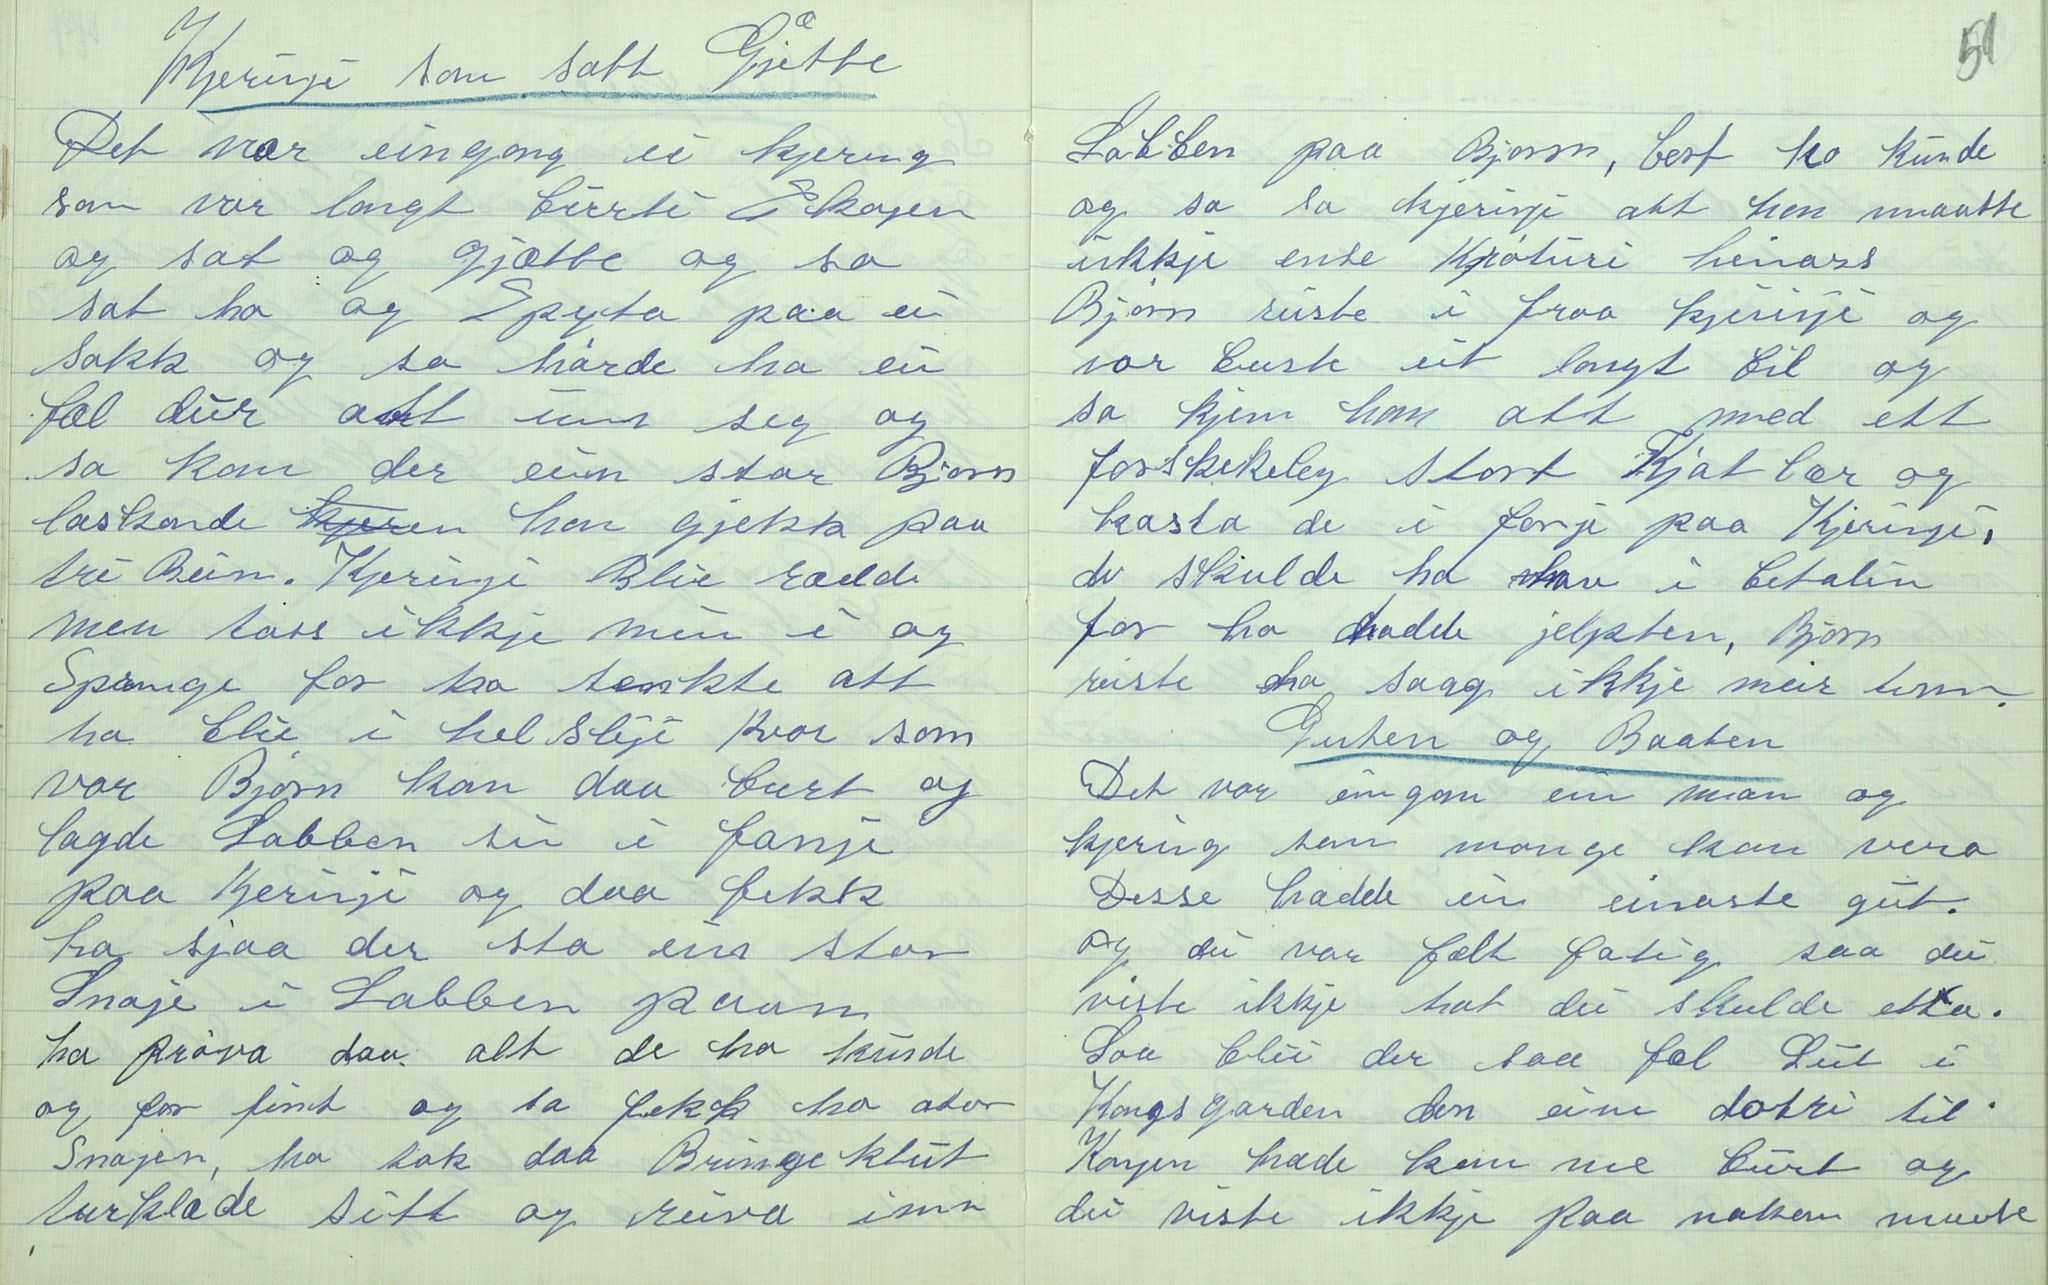 Kjerinji som satt Gjætte
Det var eingong ei kjering
som var langt burti Skogen
og sat og gjætte og so
sat ho og Spyta paa ei
sokk og so hörde ho ei
fæl dur att um seg og
so kom der ein stor Bjorn
laskande kjeren han gjekk paa
tri Bein. Kjerinji Blei rædde
men tors ikkje min i og
Springe for ho tenkte att
ho blei i hel sliji kvor som
var Bjørn kom daa burt og
lagde Labben sin i fanji
paa Kjerinji og daa fekk
ho sjaa der sto ein stor
Snaje i Labben paam
ho pröva daa alt de ho kunde
og for fint og so fekk ho ator
Snajen, ho tok daa Bringeklut
turklæde sitt og reiva inn
51
Labben paa Bjorn, best ho kunde
og so sa kjerinji att han maatte
ikkje ense Kröturi hinars
Björn reiste i fraa kjerinji og
var burte eit langt bil og
so kjem han att med ett
forskrekeleg stort Kjøt lær og
kasta de i fanji paa Kjerinji,
de skulde ho hav i betalin
for ho hadde jelpten, Bjorn
reiste ho saag ikkje meir tenn.
Guten og Baaten
Det var eingon ein man og
kjering som mange kan vera
Desse hadde ein einaste gut.
og dei var fælt fatig saa dei
viste ikkje hot dei skulde etta.
Saa blei der saa fæl Liit i
Kongsgarden den eine dotri til
Kongen hade kom me burt og
dei viste ikkje paa nokon maate